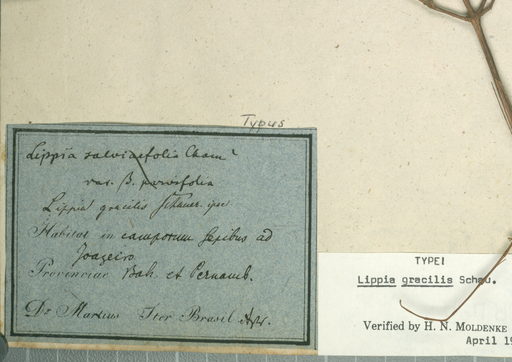 Typus
Lippia salviaefolia Cham?
var. β. parvifolia
Lippia gracilis Schauer. ipse
Habitat in camporum sepibus ad
Joazeiro
Provinciae Bah. et Pernamb.
Dr Martius Iter Brasil
TYPE!
Lippia gracilis Schau.
Verified by H. N. MOLDENKE
April 19